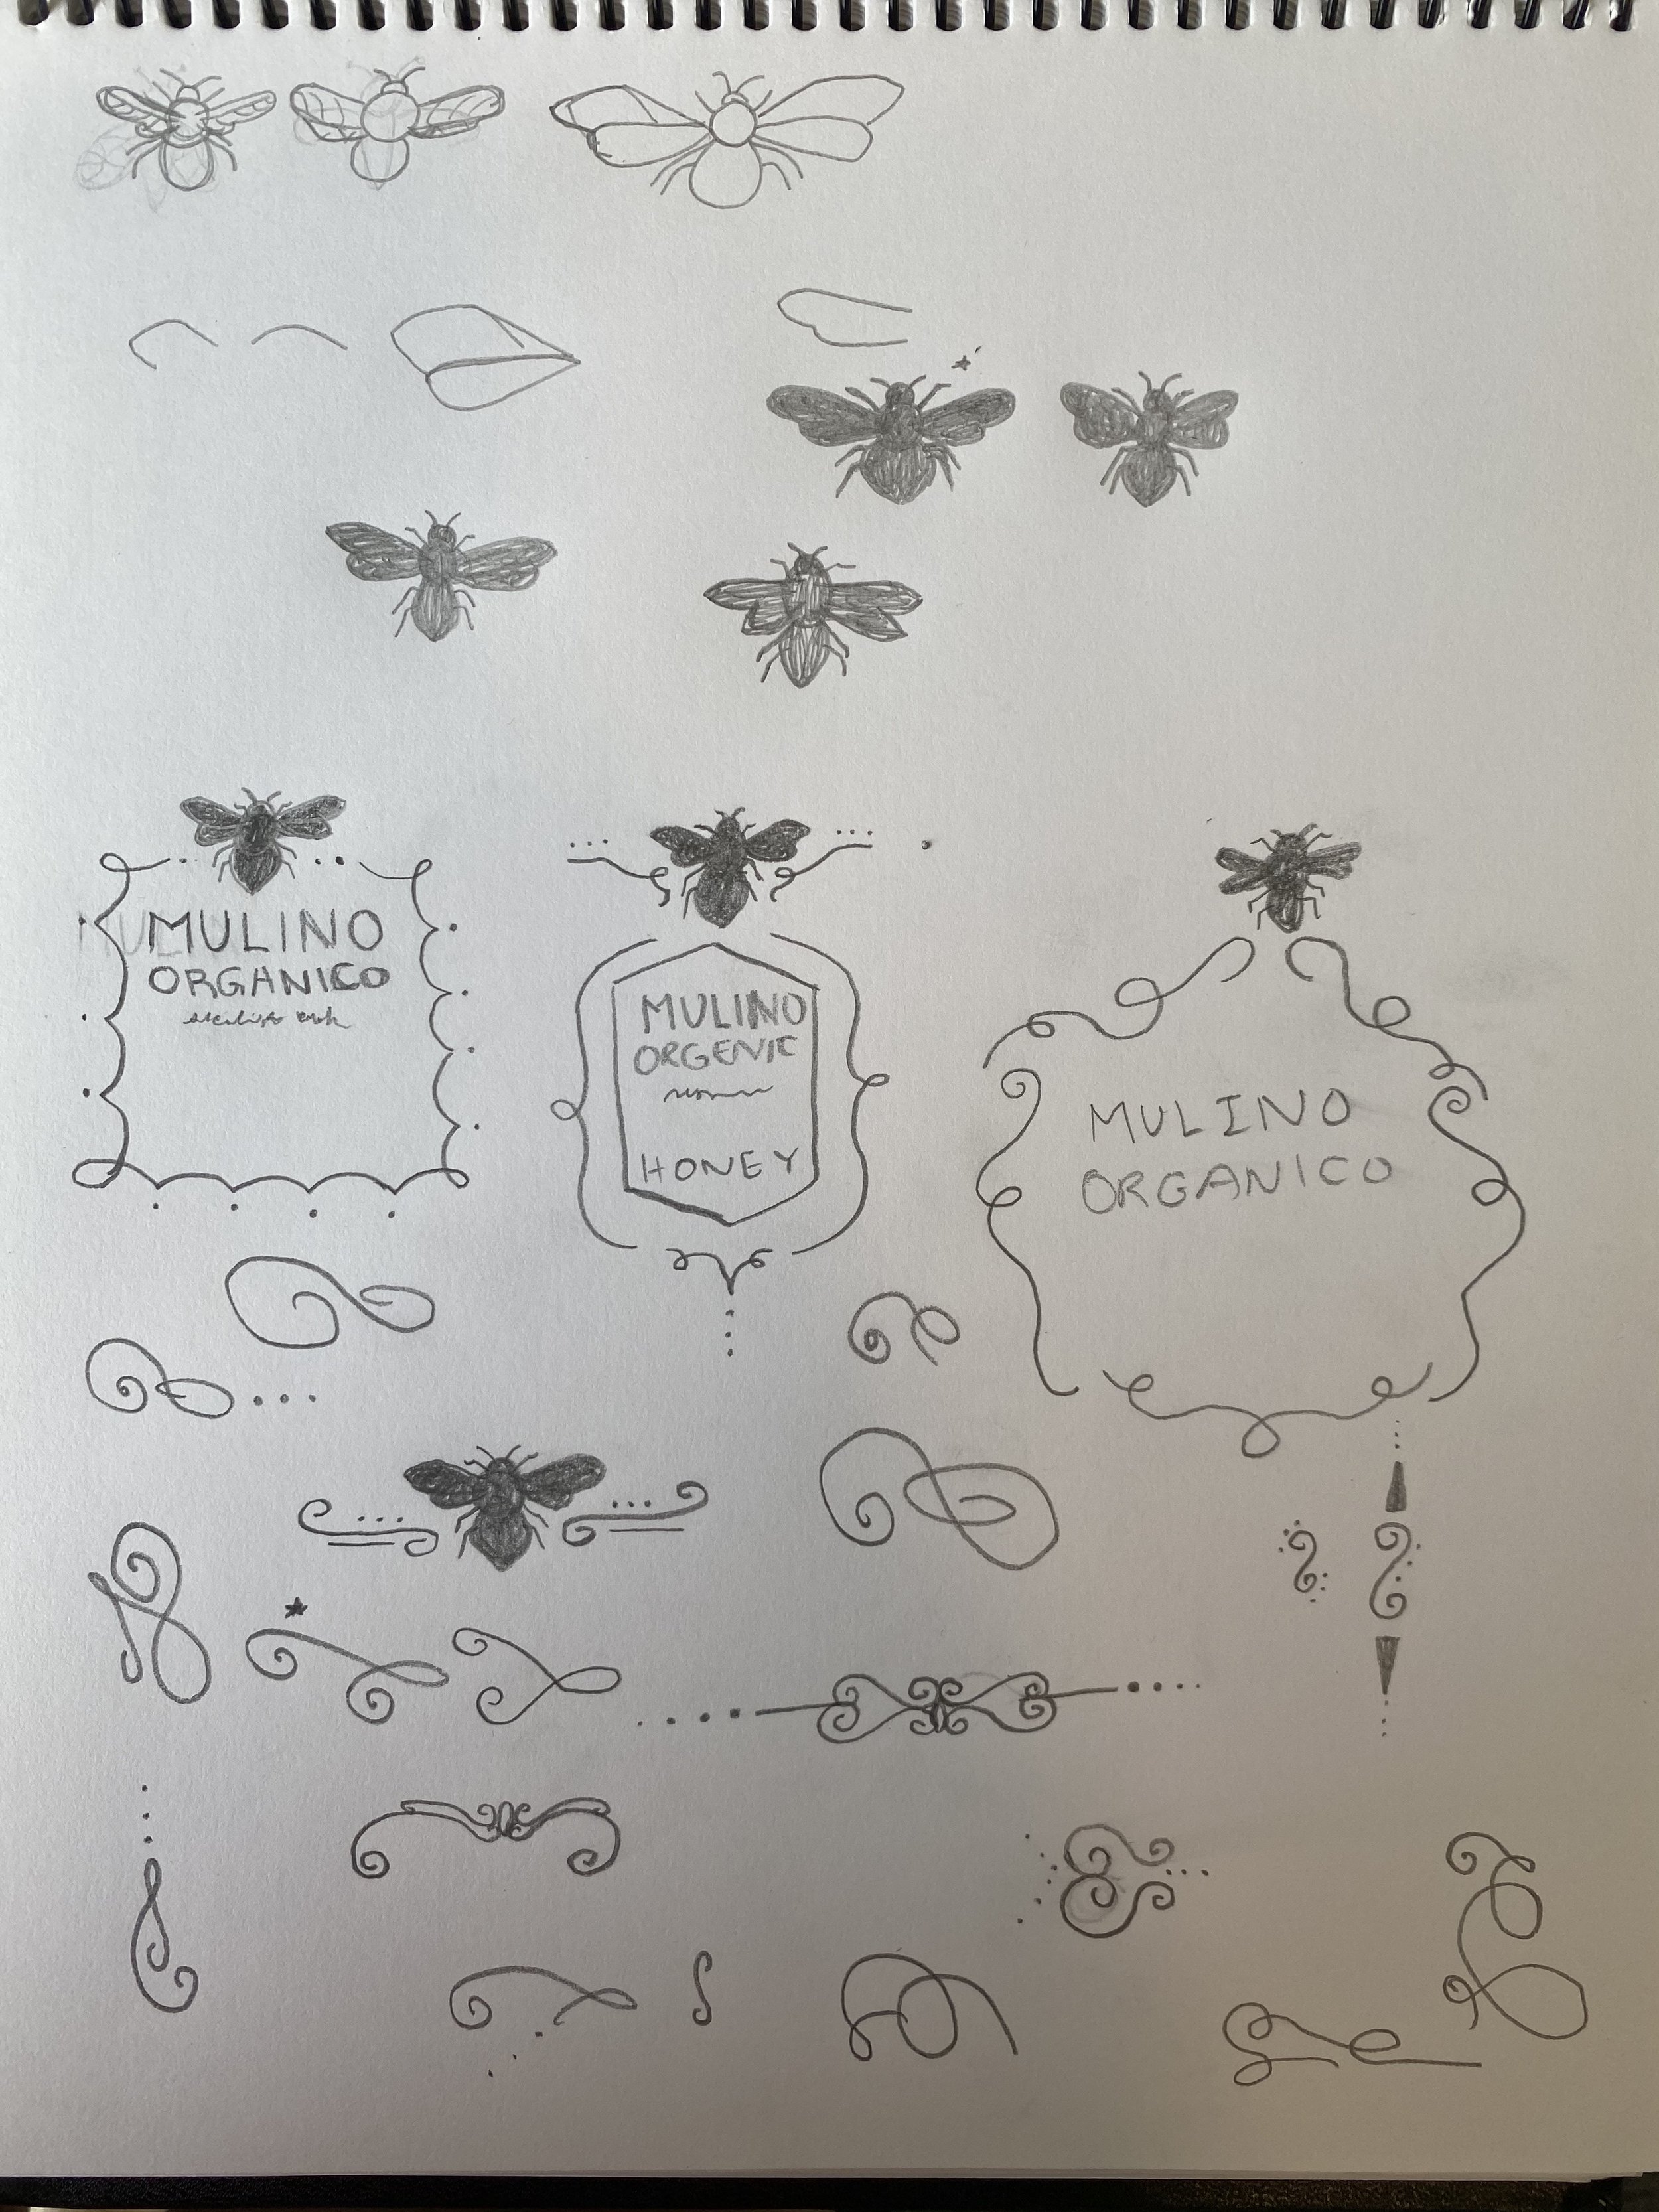 MULINO
ORGANICO
MULINO
ORGENIC
HONEY
MULINO
ORGANICO